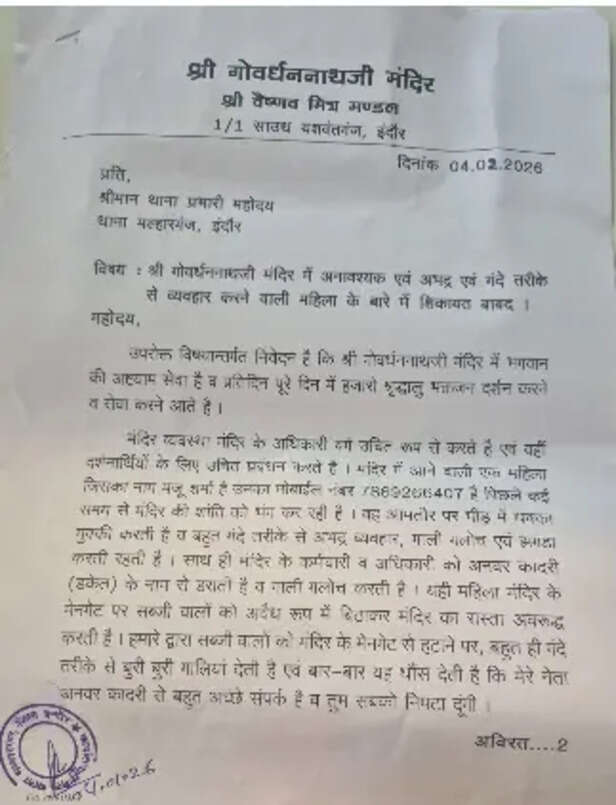 श्री गोवर्धननाथजी मंदिर
श्री वैष्णव मित्र मण्डल
1/1 साउथ यशवंतगंज, इंदौर
दिनांक 04.02.2026
प्रति,
श्रीमान थाना प्रभारी महोदय
थाना मल्हारगंज, इंदौर
विषय : श्री गोवर्धननाथजी मंदिर में अनावश्यक एवं अभद्र एवं गंदे तरीके
से व्यवहार करने वाली महिला के बारे में शिकायत बाबद ।
महोदय,
उपरोक्त विषयान्तर्गत निवेदन है कि श्री गोवर्धननाथजी मंदिर में भगवान
की अष्टयाम सेवा है व प्रतिदिन पूरे दिन में हजारो श्रृद्धालु भक्तजन दर्शन करने
व सेवा करने आते है ।
मंदिर व्यवस्था मंदिर के अधिकारी वर्ग उचित रूप से करते है एवं वहीं
दर्शनार्थियों के लिए उचित प्रबंधन करते है । मंदिर में आने वाली एक महिला
जिसका नाम मंजू शर्मा है उनका मोबाईल नंबर 7869266407 है पिछले कई
समय से मंदिर की शांति को भंग कर रही है । वह आमतौर पर भीड़ में धक्का
मुक्की करती है व बहुत गंदे तरीके से अभद्र व्यवहार, गाली गलोच एवं झगडा
करती रहती है । साथ ही मंदिर के कर्मचारी व अधिकारी को अनवर कादरी
(डकैत) के नाम से डराती है व गाली गलोच करती है । यही महिला मंदिर के
मेनगेट पर सब्जी वालों को अवैध रूप में बिठाकर मंदिर का रास्ता अवरूद्ध
करती है । हमारे द्वारा सब्जी वालों को मंदिर के मेनगेट से हटाने पर, बहुत ही गंदे
तरीके से बुरी बुरी गालियां देती है एवं बार-बार यह धौंस देती है कि मेरे नेता
अनवर कादरी से बहुत अच्छे संपर्क है व तुम सबको निपटा दूंगी ।
अविरत....2